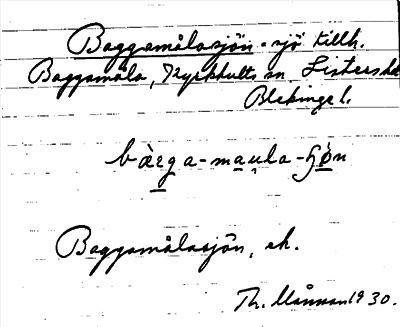 Baggamålasjön - sjö tillh.
Baggamåla, Kyrkhults sn, Listers hd
Blekinge l.
bàrga-maula-ɧön
Baggamålasjön, ek.
Th. Månsson 1930.